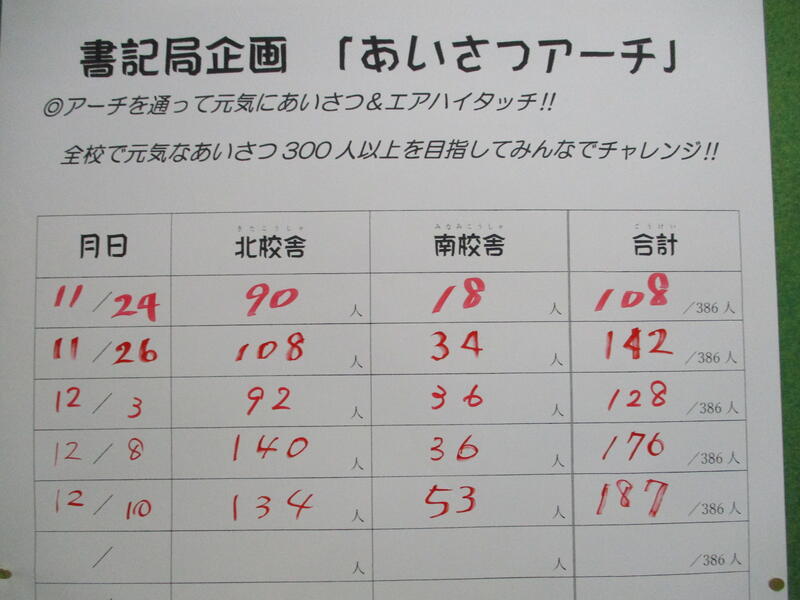 書記局企画 「あいさつアーチ」
◎アーチを通って元気にあいさつ&エアハイタッチ!!
全校で元気なあいさつ300人以上を目指してみんなでチャレンジ!!
きたこうしゃ みなみこうしゃ ごうけい
月日 北校舎 南校舎 合計
11/24 90人 18人 108/386人
11/26 108人 34人 142/386人
12/3 92人 36人 128/386人
12/8 140人 36人 176/386人
12/10 134人 53人 187/386人
/ 人 人 /386人